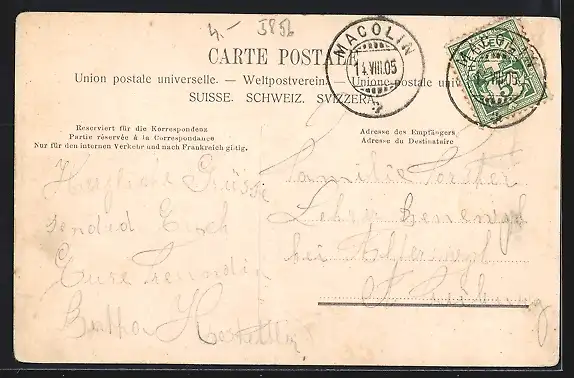 4.- 5856
CARTE POSTALE
Union postale universelle. — Weltpostverein. — Unione postale uni
SUISSE. SCHWEIZ. SVIZZERA.
MACOLIN
14.VIII.05
MACOLIN
14.VIII.05
5
Reserviert für die Korrespondenz
Partie réservée à la Correspondance
Nur für den internen Verkehr und nach Frankreich gültig.
Adresse des Empfängers
Adresse du Destinataire
Herzliche Grüsse
sendid Euch
Eure
Bertha
Familie
Lehrer
bei